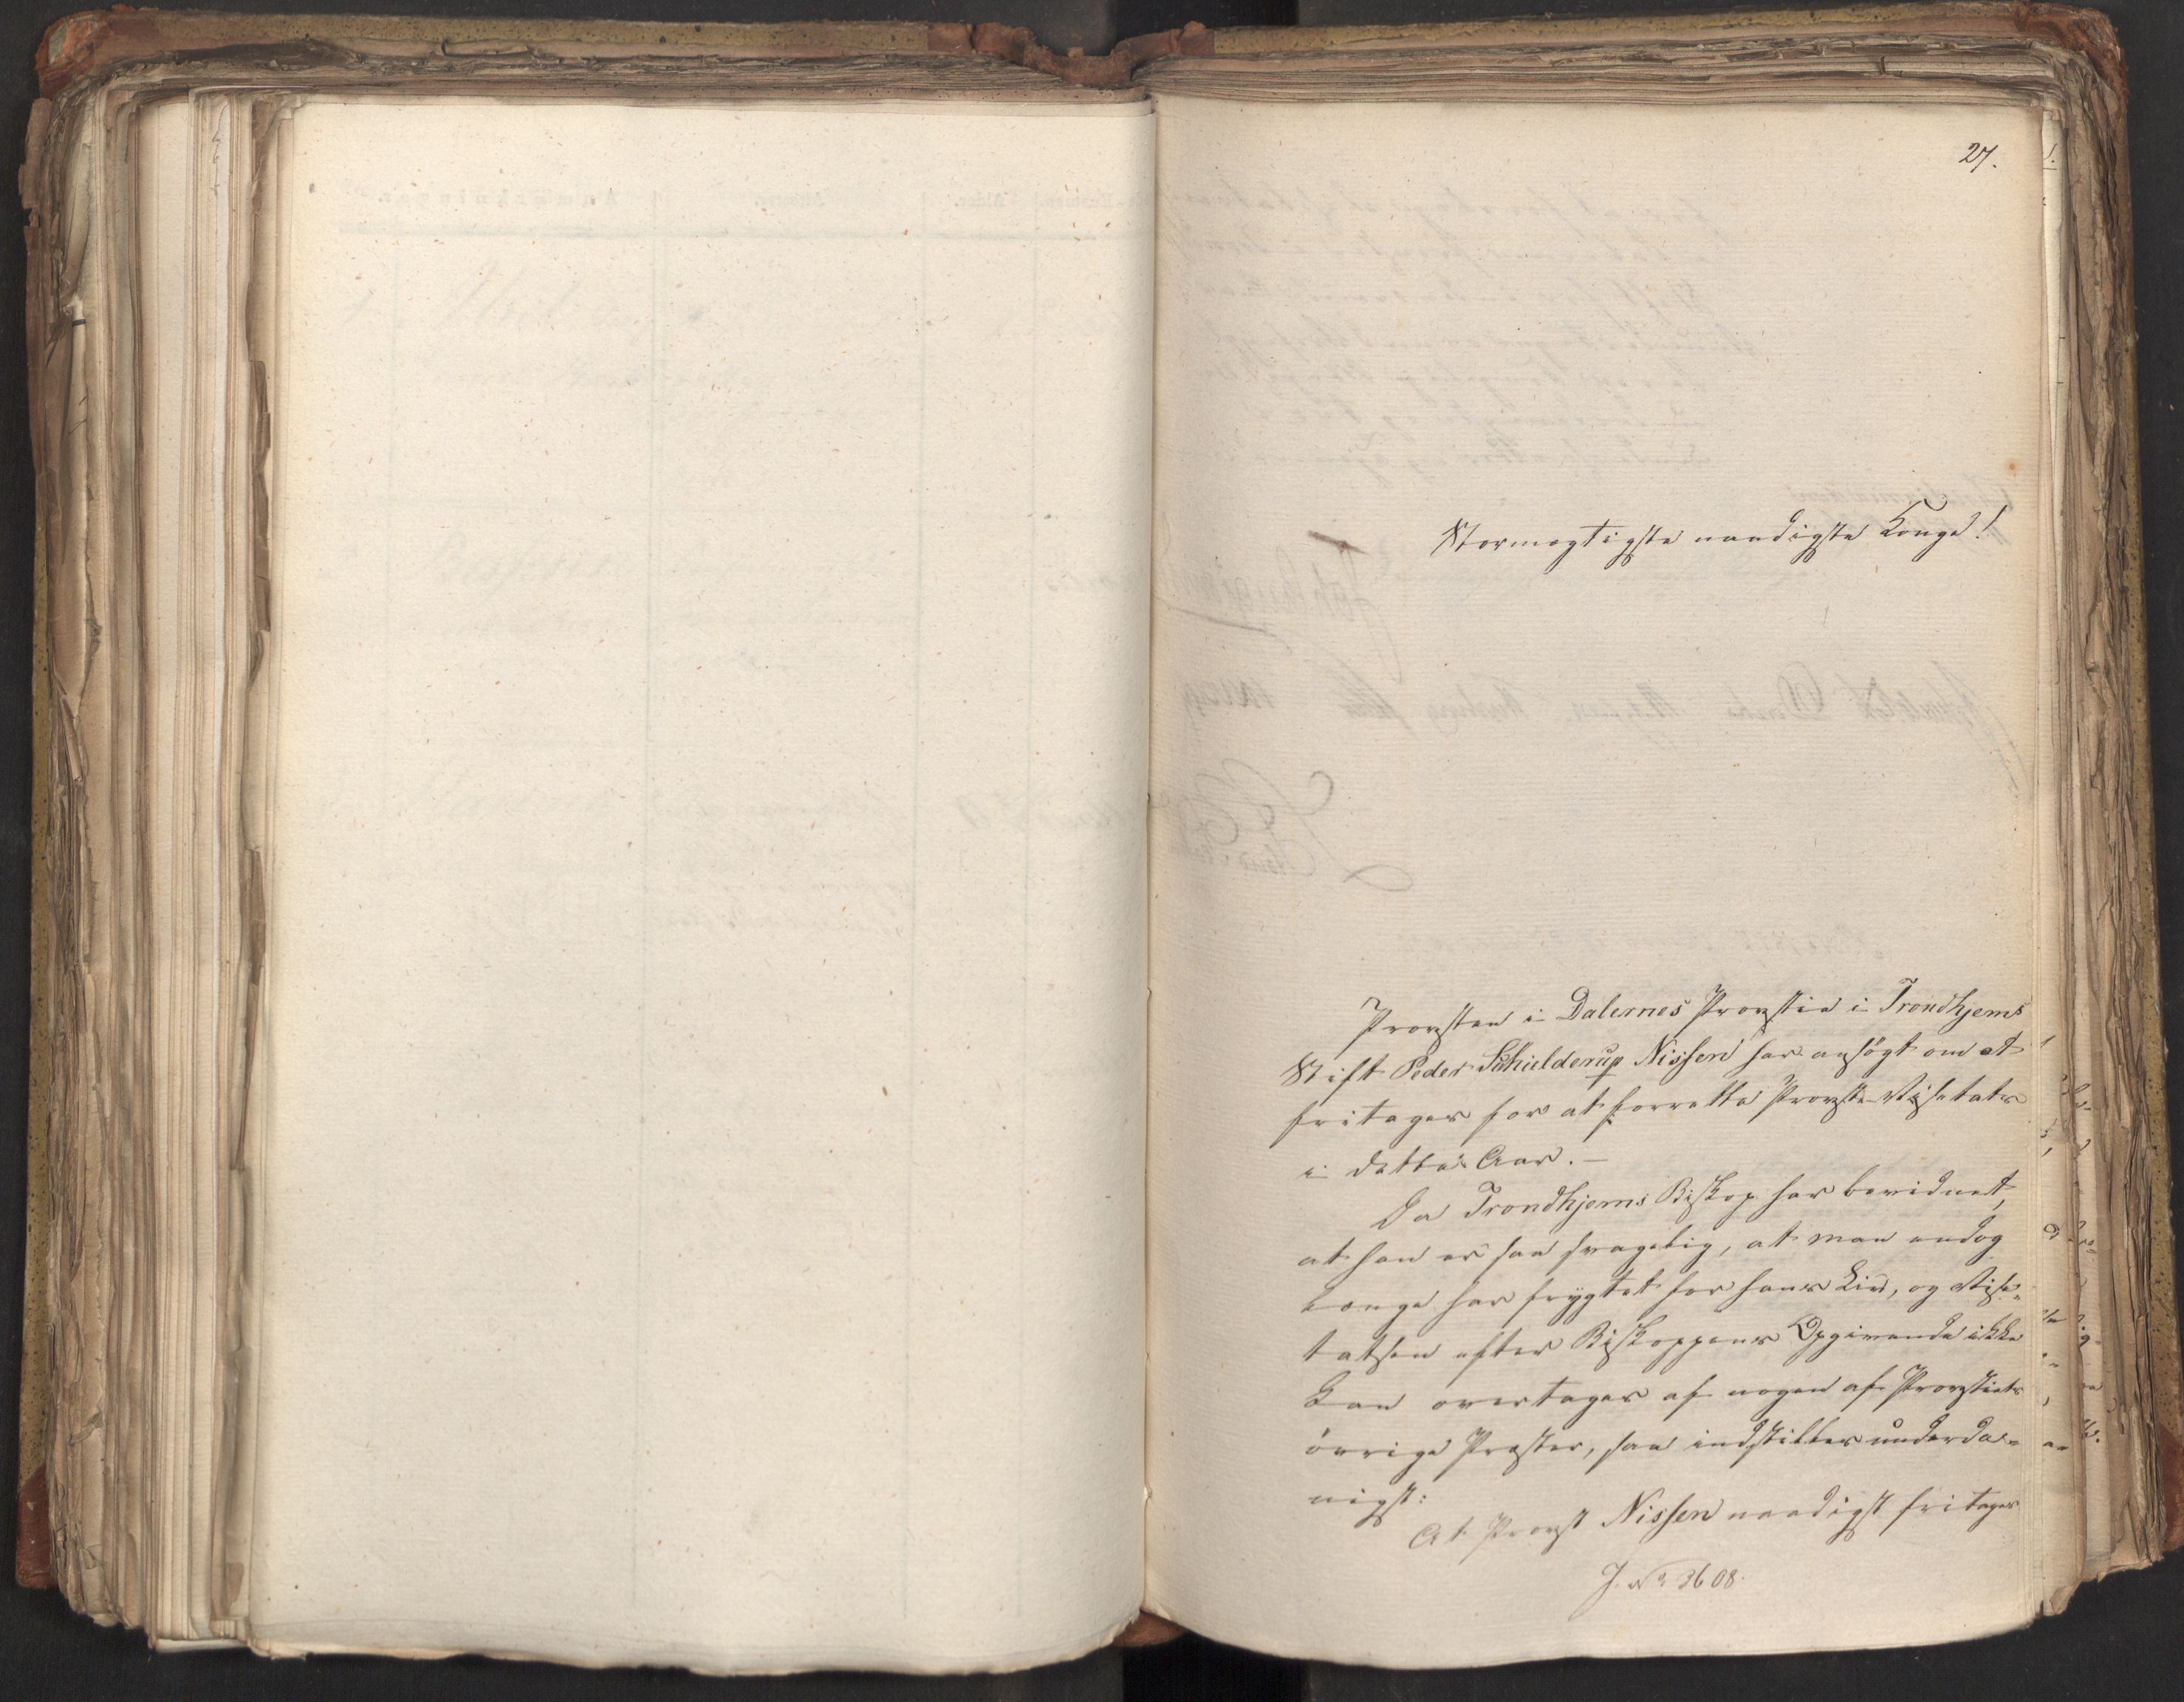 27.
Stormægtigste naadigste Konge!
Provsten i Dalernes Provstie i Trondhjems
Stift Peder Schielderup Nissen har ansögt om at
fritages for at forrette Provste-Visitats
i dette Aar.—
Da Trondhjems Biskop har bevidnet,
at han er saa svagelig, at man endog
længe har frygtet for hans Liv, og Visi-
tatsen efter Biskoppens Opgivende ikke
kan overtages af nogen af Provstiets
övrige Præster, saa indstilles underda-
nigst:
At Provst Nissen naadigst fritages
J. No 3608.